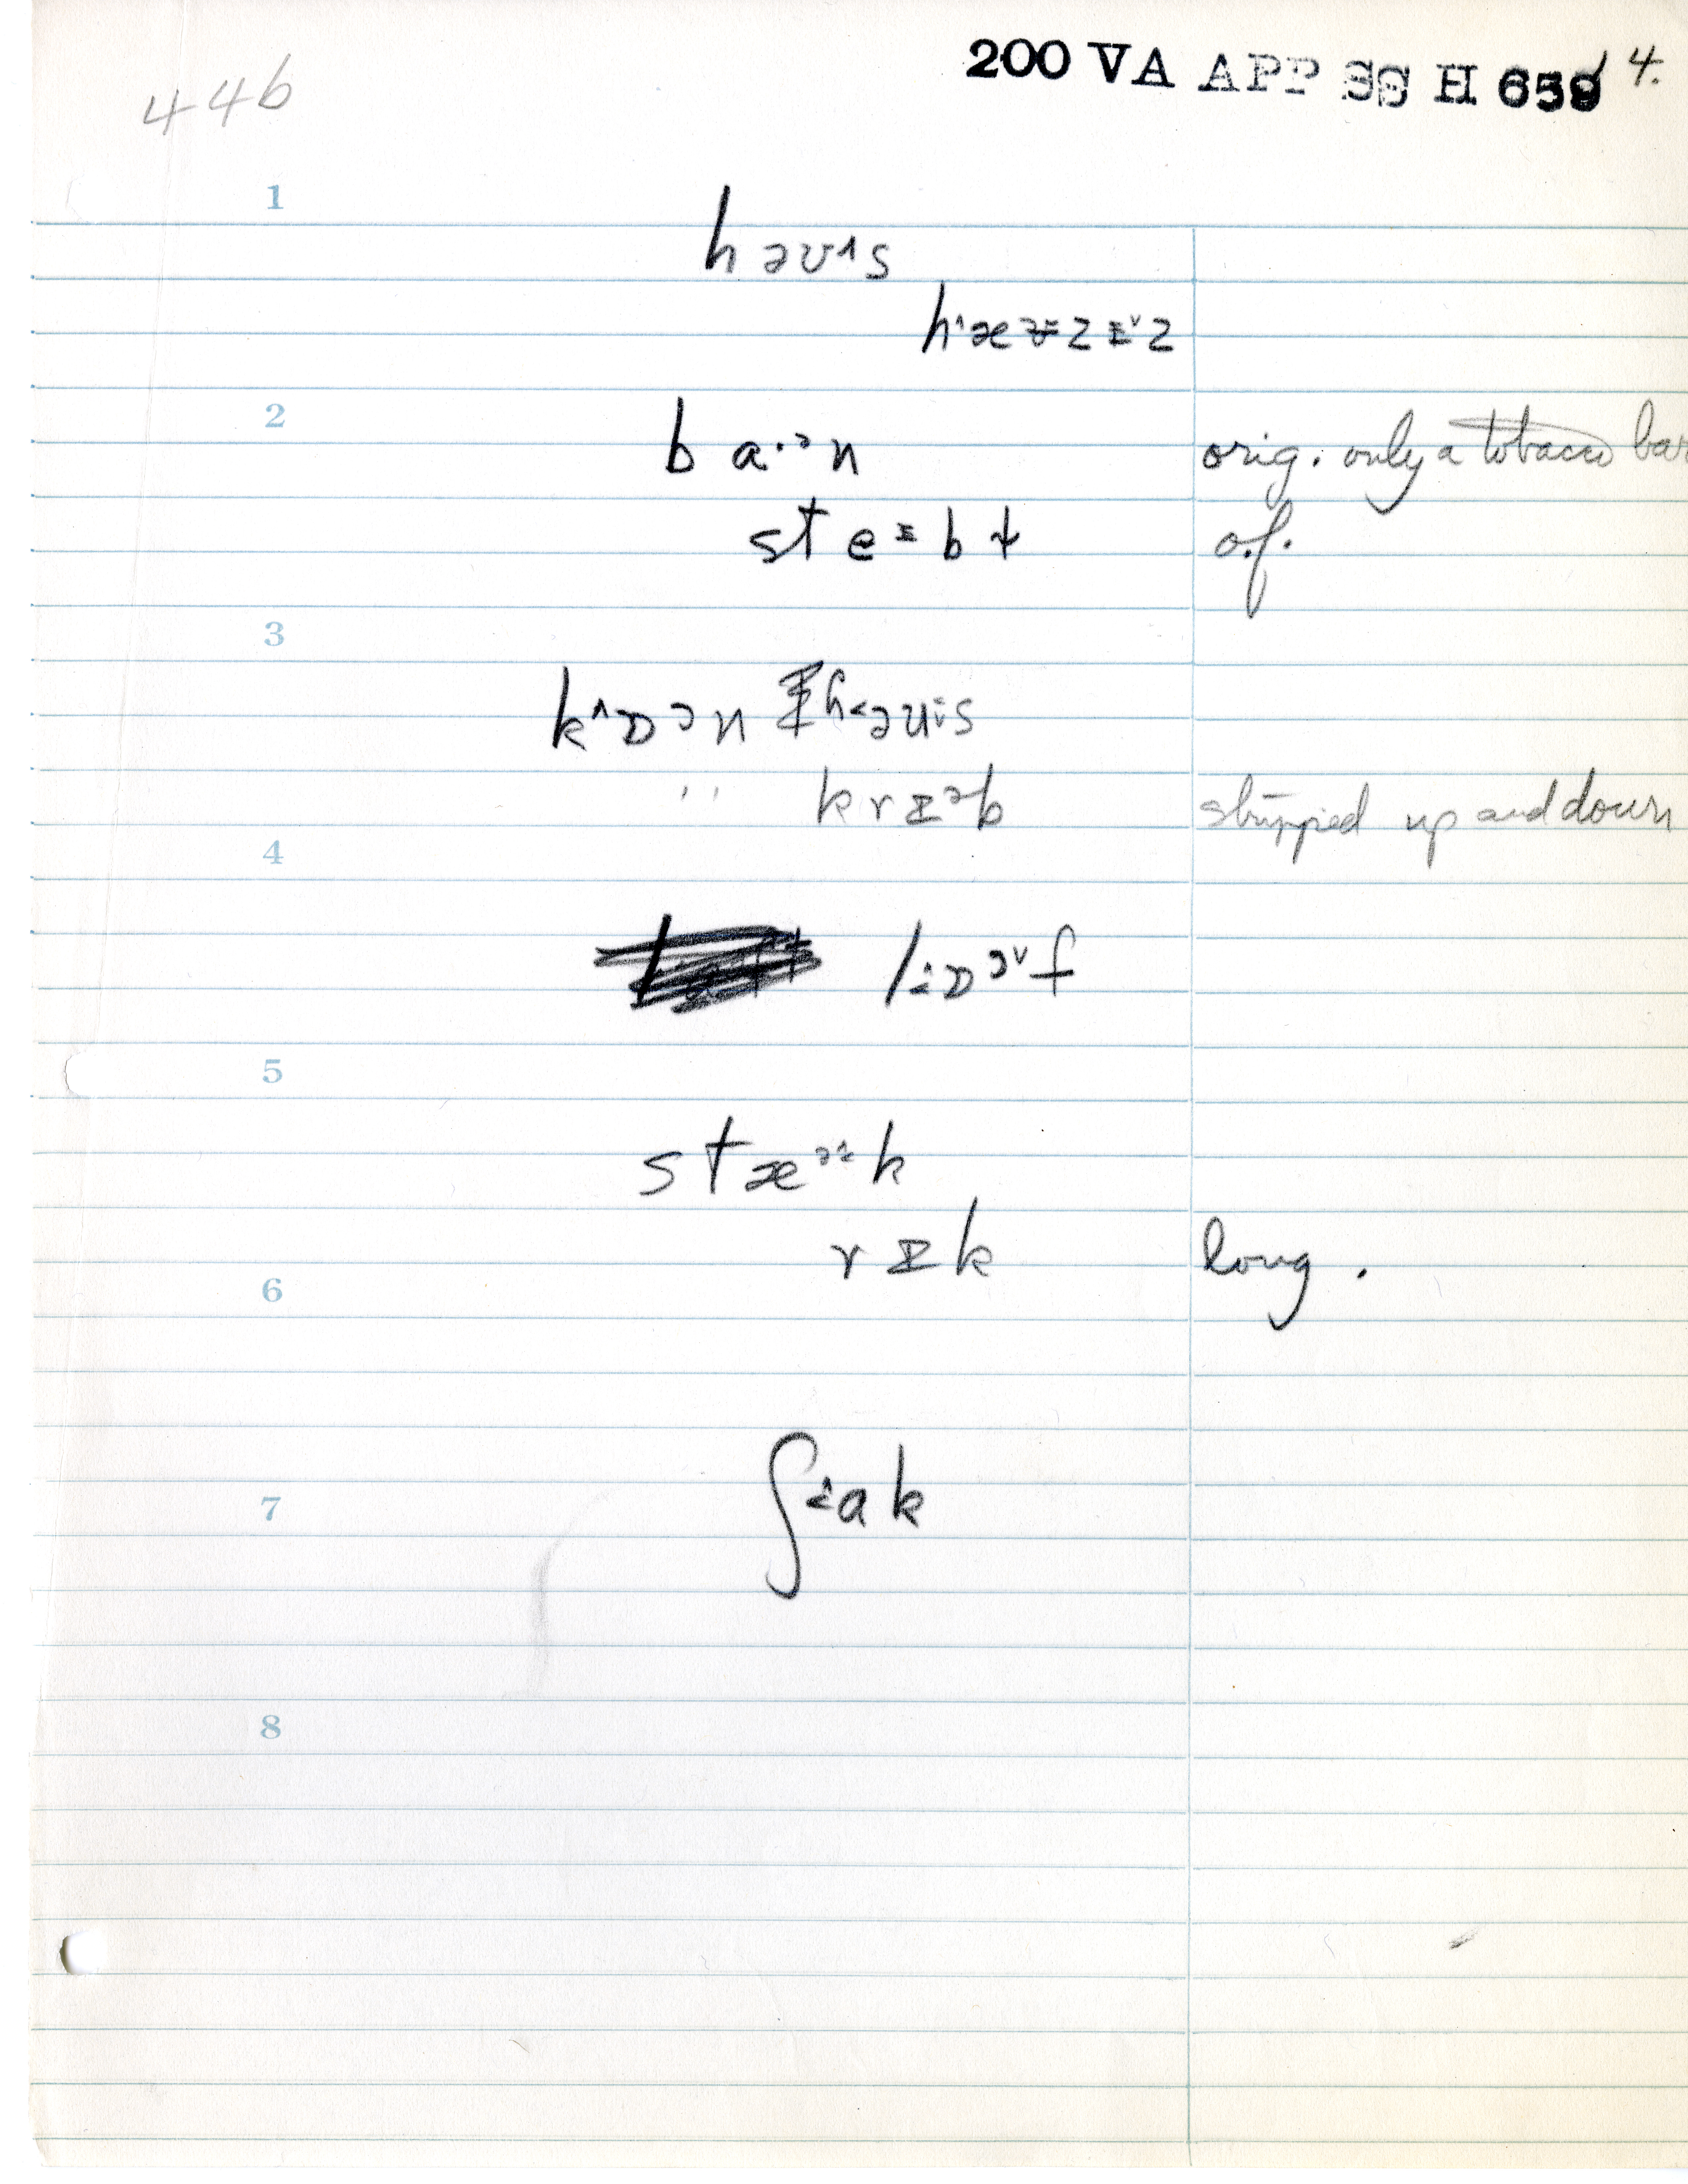 200 VA APP SS H 659 4.
446
1
həʊ˄s
h˄æʊzɪ˅z
2
b a·ᵊn orig. only a tobacco bar
st e ɪ b ɫ o.f.
3
k˄ɒən h˂əʊs
" krɪᵊb stripped up and down
4
l ɒᵊ˅f
5
stæᵊk
rɪk long.
6
ʃak
7
8